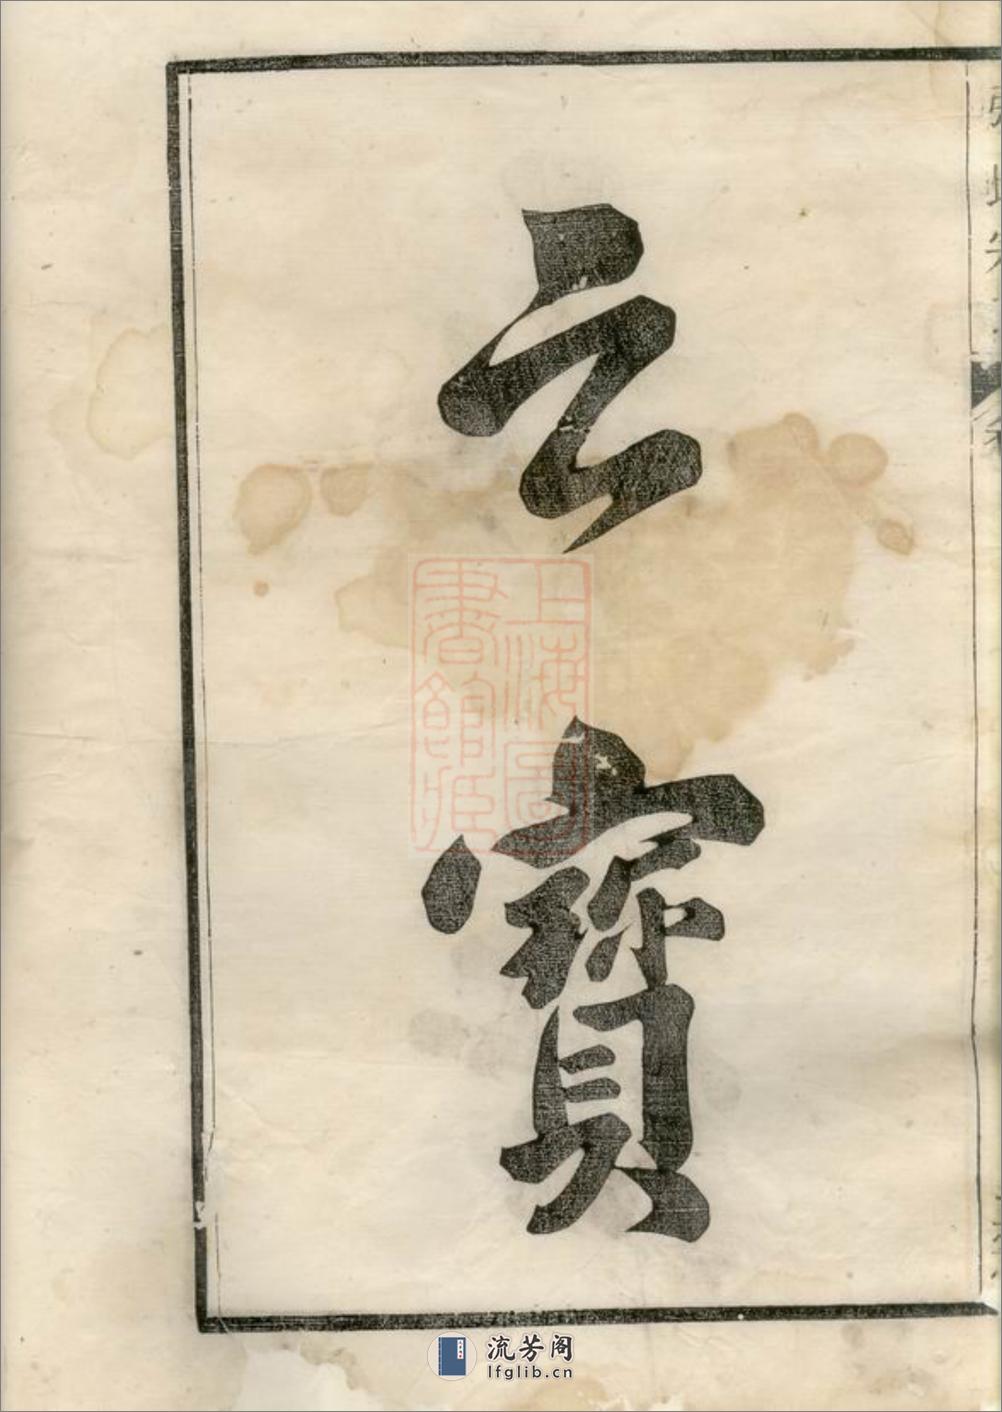 之
寶
上海圖
書館藏
流芳阁
lfglib.cn